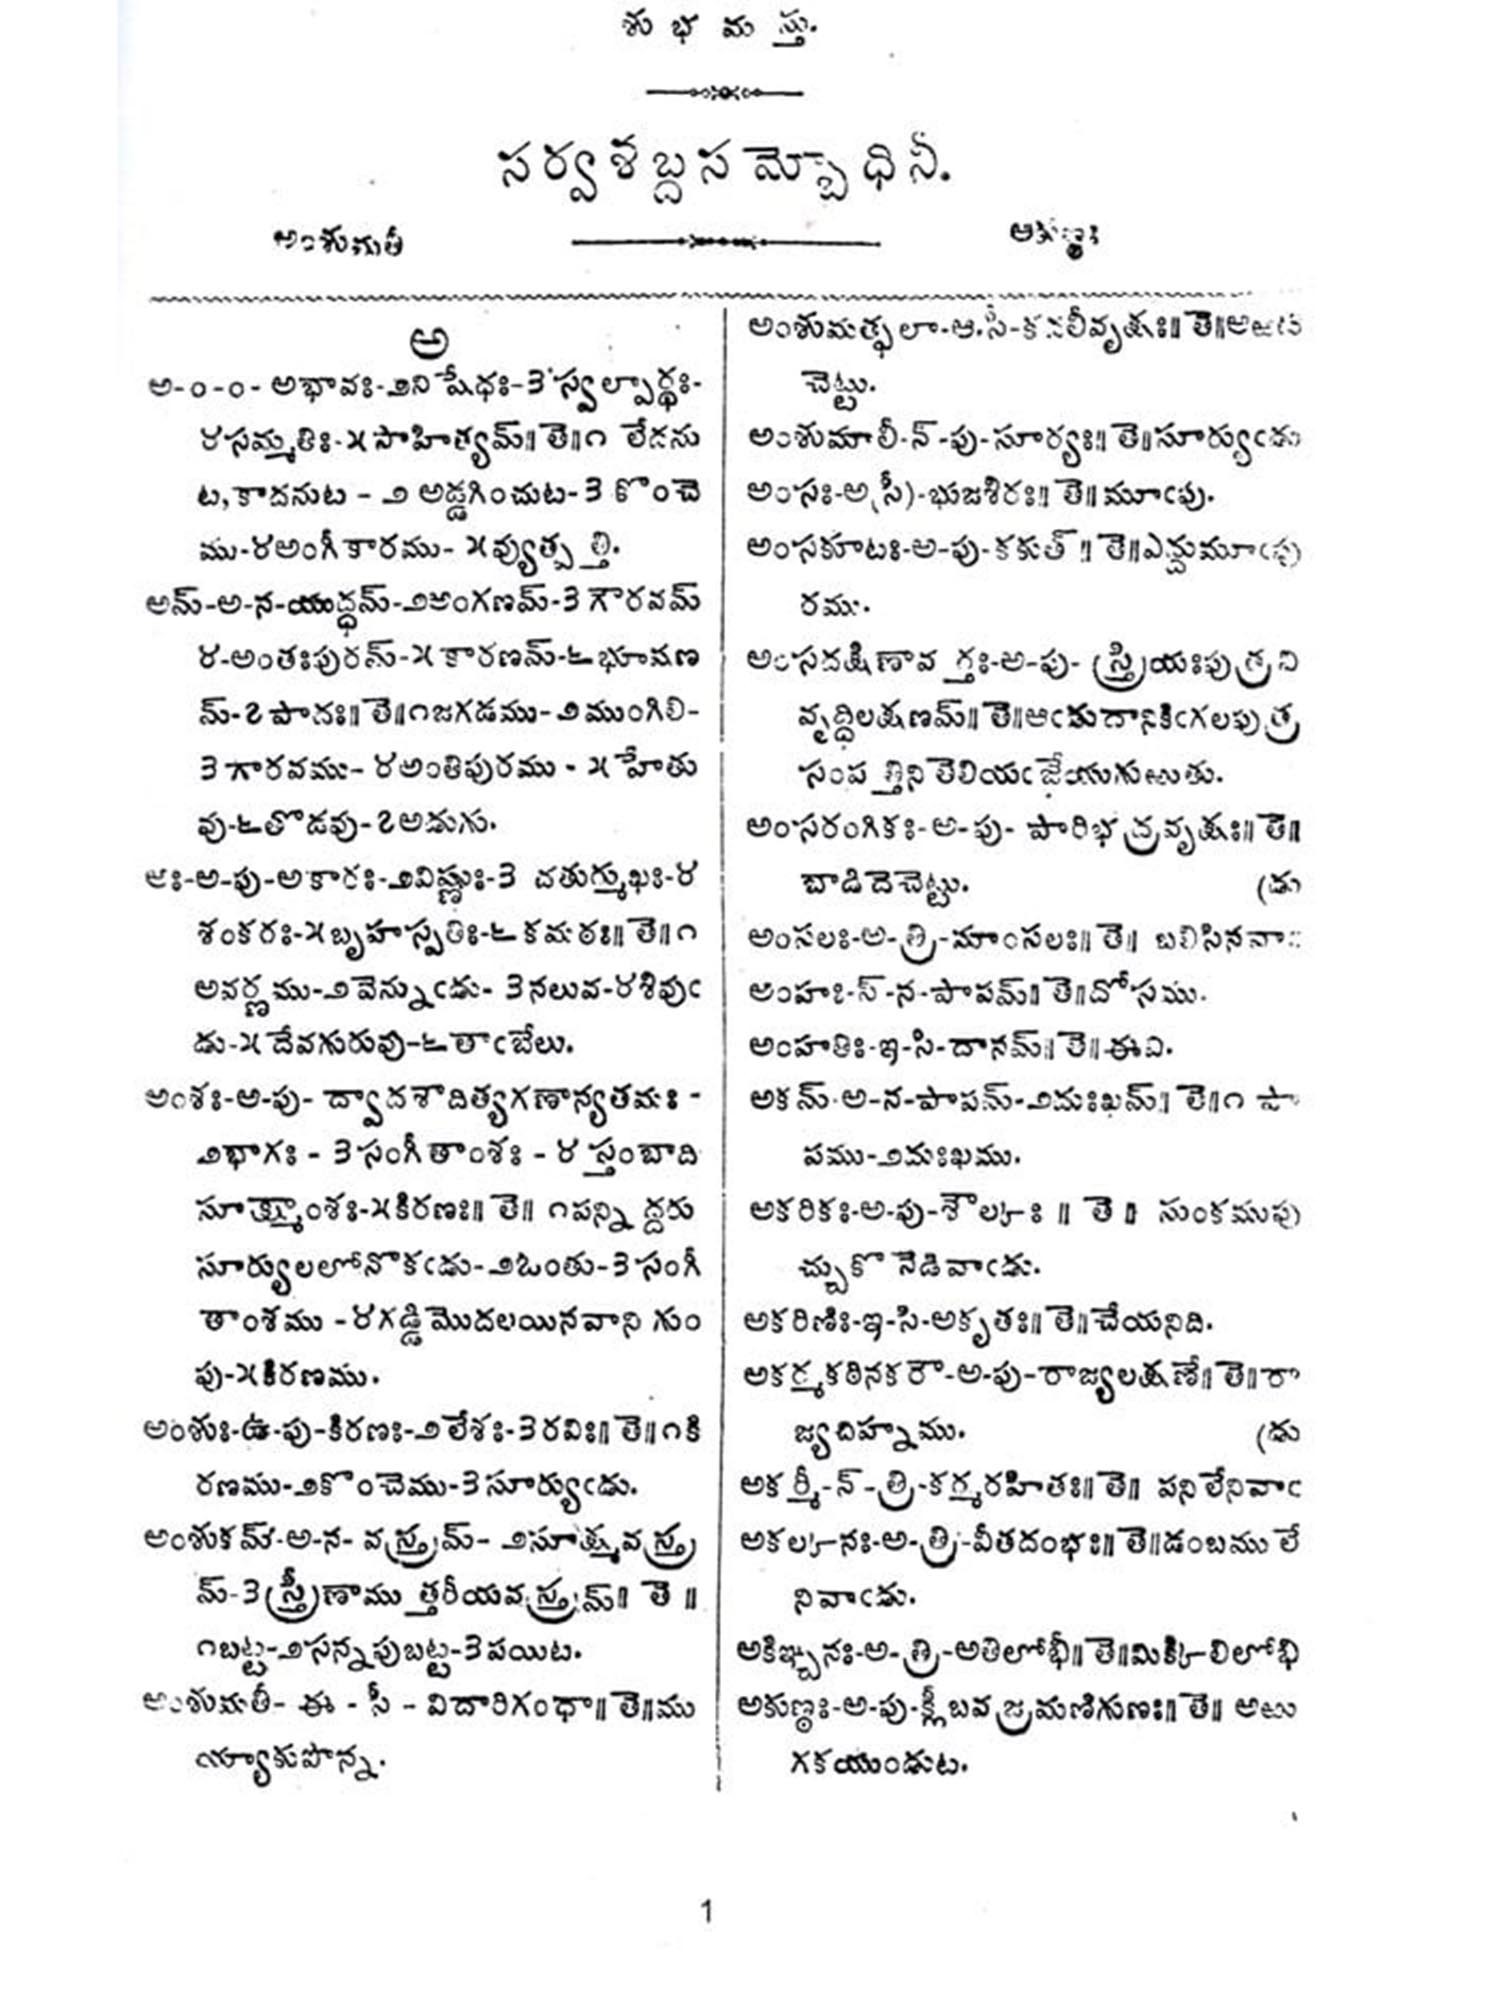 శుభమస్తు.
సర్వశబ్దసమ్బోధినీ.
అంశుమతీ
అకుణ్ఠః
అ
అ-౦-౦- అభావః-౨నిషేధః-౩స్వల్పార్థః-
౪సమ్మతిః-౫సాహిత్యమ్॥ తె॥౧ లేదను
ట, కాదనుట - ౨ అడ్డగించుట-౩ కొంచె
ము-౪అంగీకారము- ౫వ్యుత్పత్తి.
అమ్-అ-న-యుద్ధమ్-౨అంగణమ్-౩ గౌరవమ్
౪-అంతఃపురమ్-౫ కారణమ్-౬భూషణ
మ్-౭ పాదః॥ తె॥౧జగడము-౨ముంగిలి-
౩గారవము- ౪అంతిపురము - ౫ హేతు
వు-౬తొడవు-౭అడుగు.
అః-అ-పు-అకారః-౨విష్ణుః-౩ చతుర్ముఖః-౪
శంకరః-౫బృహస్పతిః-౬ కమఠః॥ తె॥౧
అవర్ణము-౨ వెన్నుఁడు- ౩నలువ-౪శివుఁ
డు-౫ దేవగురువు-౬తాఁబేలు.
అంశః-అ-పు- ద్వాదశాదిత్యగణాన్యతమః -
౨భాగః - ౩సంగీతాంశః - ౪ స్తంబాది
సూక్ష్మాంశః-౫కిరణః॥ తె॥ ౧పన్నిద్దరు
సూర్యులలోనొకఁడు-౨ఓంతు-౩సంగీ
తాంశము -౪గడ్డిమొదలయినవాని గుం
పు-౫కిరణము.
అంశుః-ఉ-పు-కిరణః-౨లేశః-౩రవిః॥ తె॥౧కి
రణము-౨కొంచెము-౩సూర్యుఁడు.
అంశుకమ్-అ-న- వస్త్రమ్- ౨సూక్ష్మవస్త్ర
మ్-౩స్త్రీణాముత్తరీయవస్త్రమ్॥ తె ॥
౧బట్ట-౨సన్నపుబట్ట-౩పయిట.
అంశుమతీ- ఈ - సీ - విదారిగంధా॥ తె॥ము
య్యాకుపొన్న.
అంశుమత్ఫలా-ఆ.సీ-కదలీవృక్షః॥ తె॥అఱఁటి
చెట్టు.
అంశుమాలీ-న్-పు-సూర్యః॥ తె॥సూర్యుఁడు
అంసః-అ(సీ)-భుజశిరః॥ తె॥మూఁపు.
అంసకూటః-అ-పు-కకుత్ ॥ తె॥ఎద్దుమూఁపు
రము.
అంసదక్షిణావర్తః-అ-పు- స్త్రియఃపుత్రని
వృద్ధిలక్షణమ్॥ తె॥ఆఁడుదానికిఁగలపుత్ర
సంపత్తిని తెలియఁ జేయుగుఱుతు.
అంసరంగికః-అ-పు- పారిభద్రవృక్షః॥ తె॥
బాడిదెచెట్టు. (డు
అంసలః-అ-త్రి-మాంసలః॥ తె॥ బలిసినవాఁ
అంహః-స్-న-పాపమ్॥ తె॥దోసము.
అంహతిః-ఇ-సి-దానమ్॥ తె॥ఈవి.
అకమ్-అ-న-పాపమ్-౨దుఃఖమ్॥ తె॥౧ పా
పము-౨దుఃఖము.
అకరికః-అ-పు-శౌల్కః ॥ తె ॥ సుంకముపు
చ్చుకొనెడివాఁడు.
అకరిణిః-ఇ-సి-అకృతః॥ తె॥చేయనిది.
అకర్మకఠినకరౌ-అ-పు-రాజ్యలక్షణే॥ తె॥రా
జ్యచిహ్నము. (డు
అకర్మీ-న్-త్రి-కర్మరహితః॥ తె॥ పనిలేనివాఁ
అకల్కనః-అ-త్రి-వీతదంభః॥ తె॥డంబములే
నివాఁడు.
అకిఞ్చనః-అ-త్రి-అతిలోభీ॥ తె॥మిక్కిలిలోభి
అకుణ్ఠః-అ-పు-క్లీబవజ్రమణిగుణః॥ తె॥ అఱు
గకయుండుట.
1